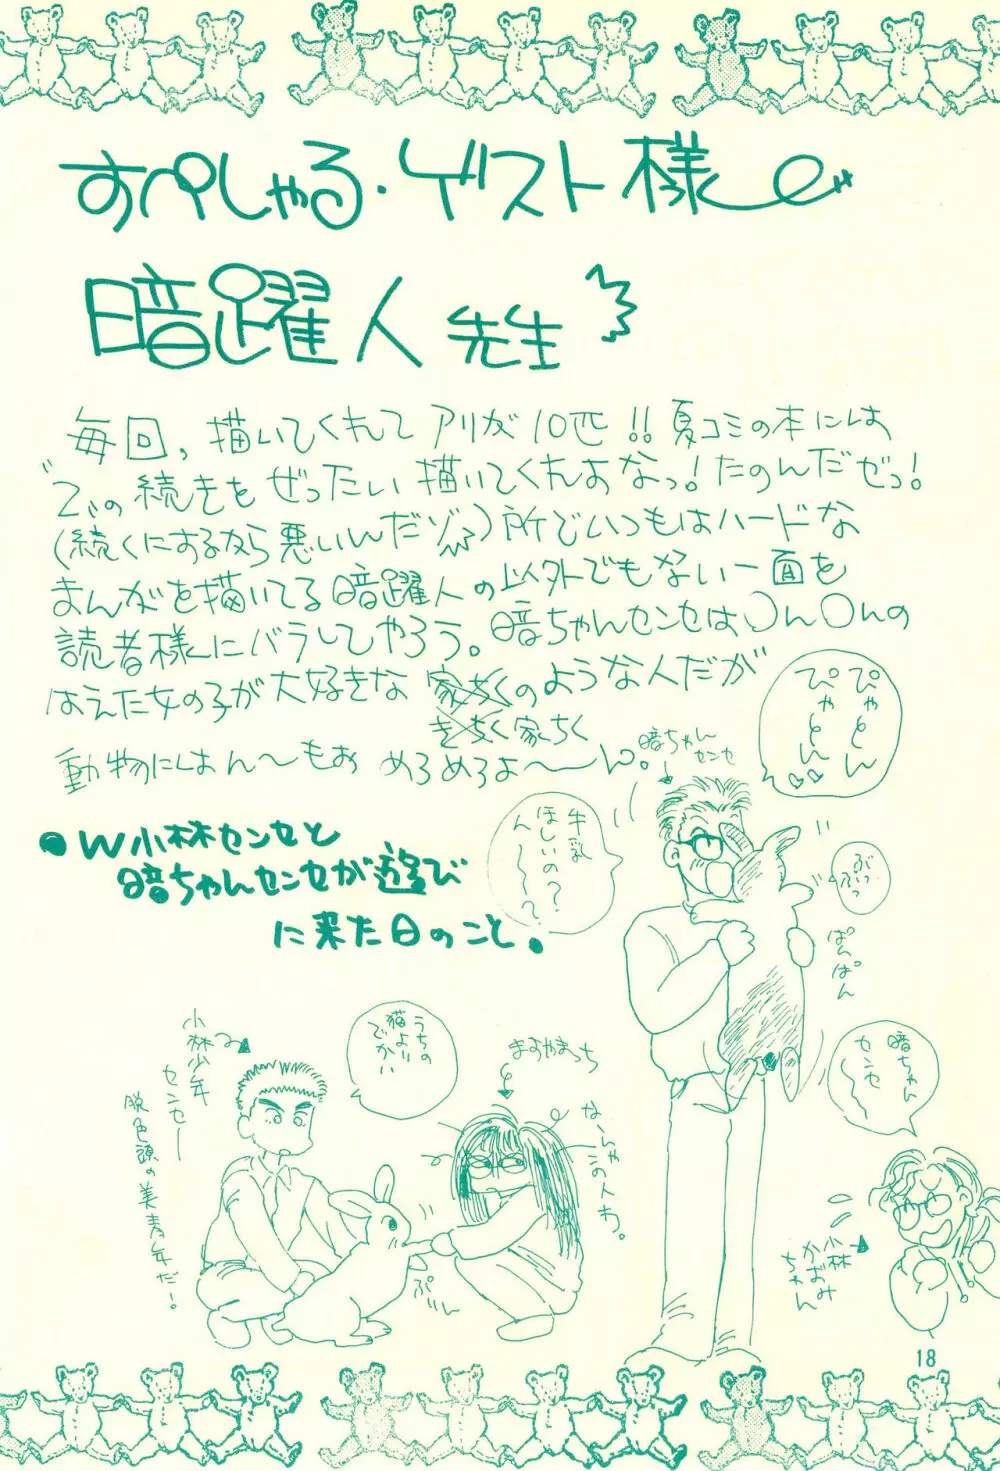 すぺしゃる・ゲスト様
暗躍人 先生
毎回，描いてくれて アリが10匹!!夏コミの本には
この続きをぜったい描いてくれよなっ!たのんだぜっ!
(続くにするなら悪いんだゾ)所でいつもはハードな
まんがを描いてる暗躍人の以外でもない一面を
読者様にバラしてやろう。暗ちゃんセンセは〇ん〇んの
はえた女の子が大好きな 家ちくのような人だが
きちく家ちく
動物にはん〜もお めろめろよ〜ん。
暗ちゃんセンセ
ぴゃとん
ぴゃとん♡♡
牛乳
ほしいの?
ん〜?
ぶいっ
ぶっ
ぱんぱん
●W小林センセと
暗ちゃんセンセが遊び
に来た日のこと。
うちの
猫より
でかい
まるやまっち
なーんや
この人わ。
小林少年
センセー
脱色頭の美青年だ!
暗ちゃん
センセ〜
小林
かおみ
ちゃん
18